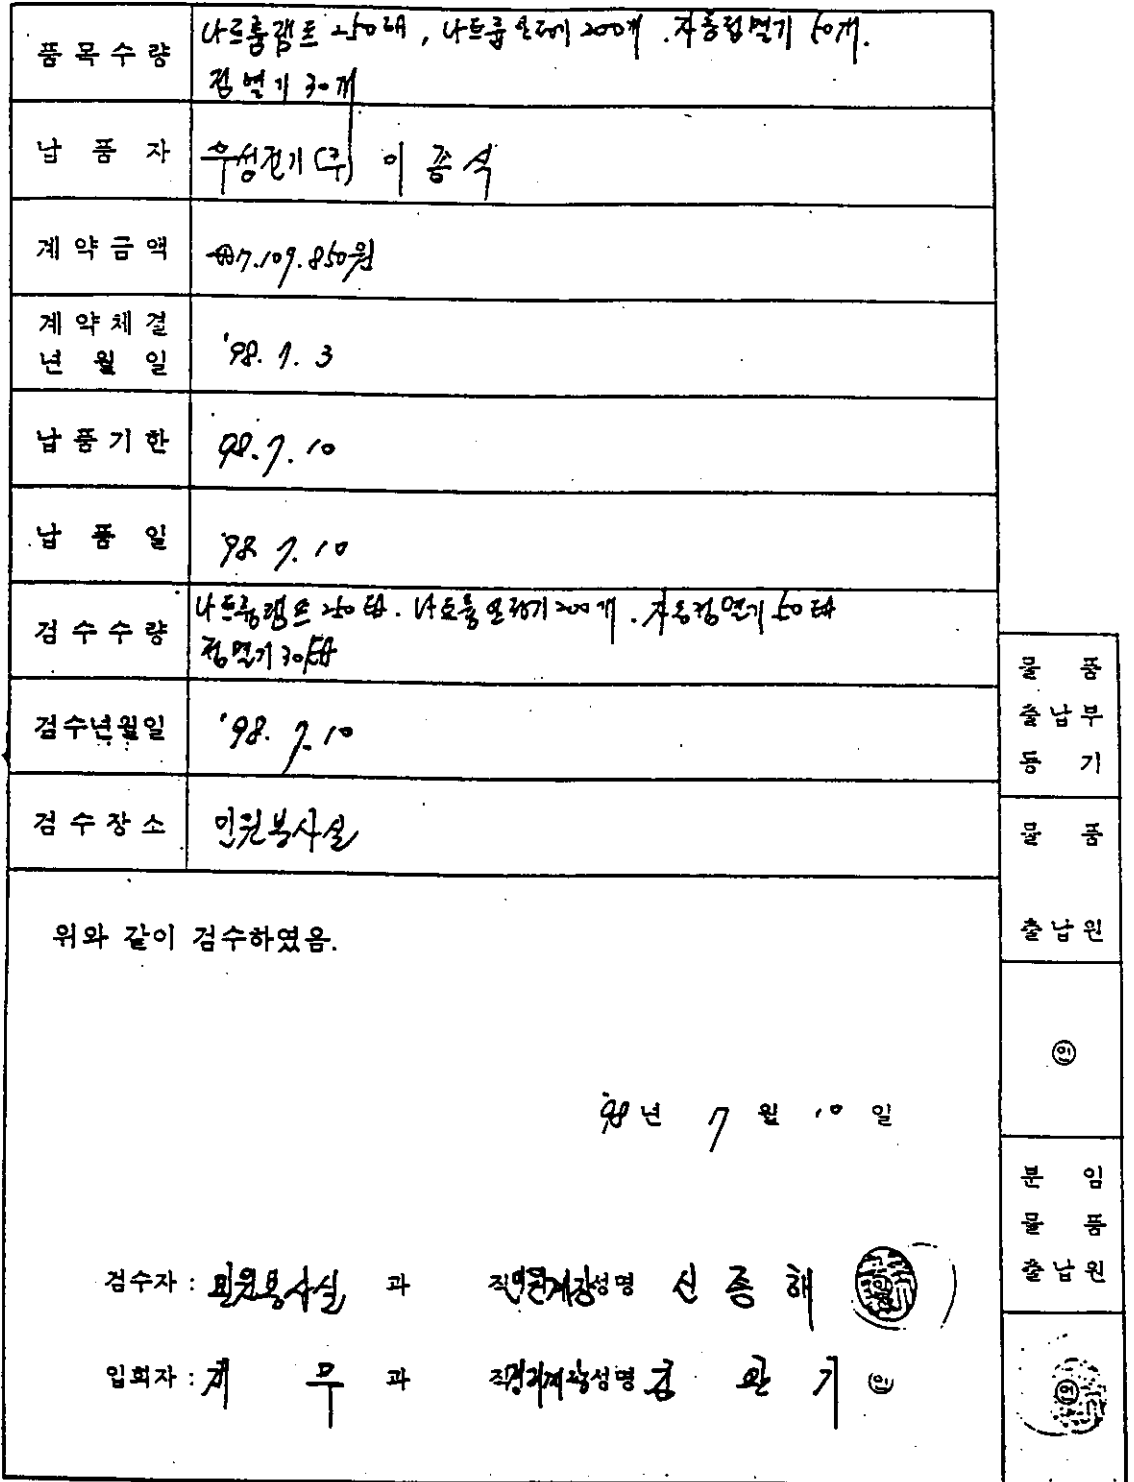 품목수량 나트륨램프 250EA, 나트륨안정기 200개. 자동점멸기 50개.
점멸기 30개
납품자 우성전기(주) 이종석
계약금액 7.109.850원
계약체결
년월일 '98. 7. 3
납품기한 98. 7. 10
납품일 '98 7. 10
검수수량 나트륨램프 250EA. 나트륨안정기 200개. 자동점멸기 50EA
점멸기 30EA
검수년월일 '98. 7. 10
검수장소 민원봉사실
위와 같이 검수하였음.
'98년 7월 10일
검수자 : 민원봉사실 과 직 민원계장 성명 신종해
입회자 : 재무 과 직 경리계장 성명 김완기 ㊞
물품
출납부
등기
물품
출납원
㊞
분임
물품
출납원
㊞